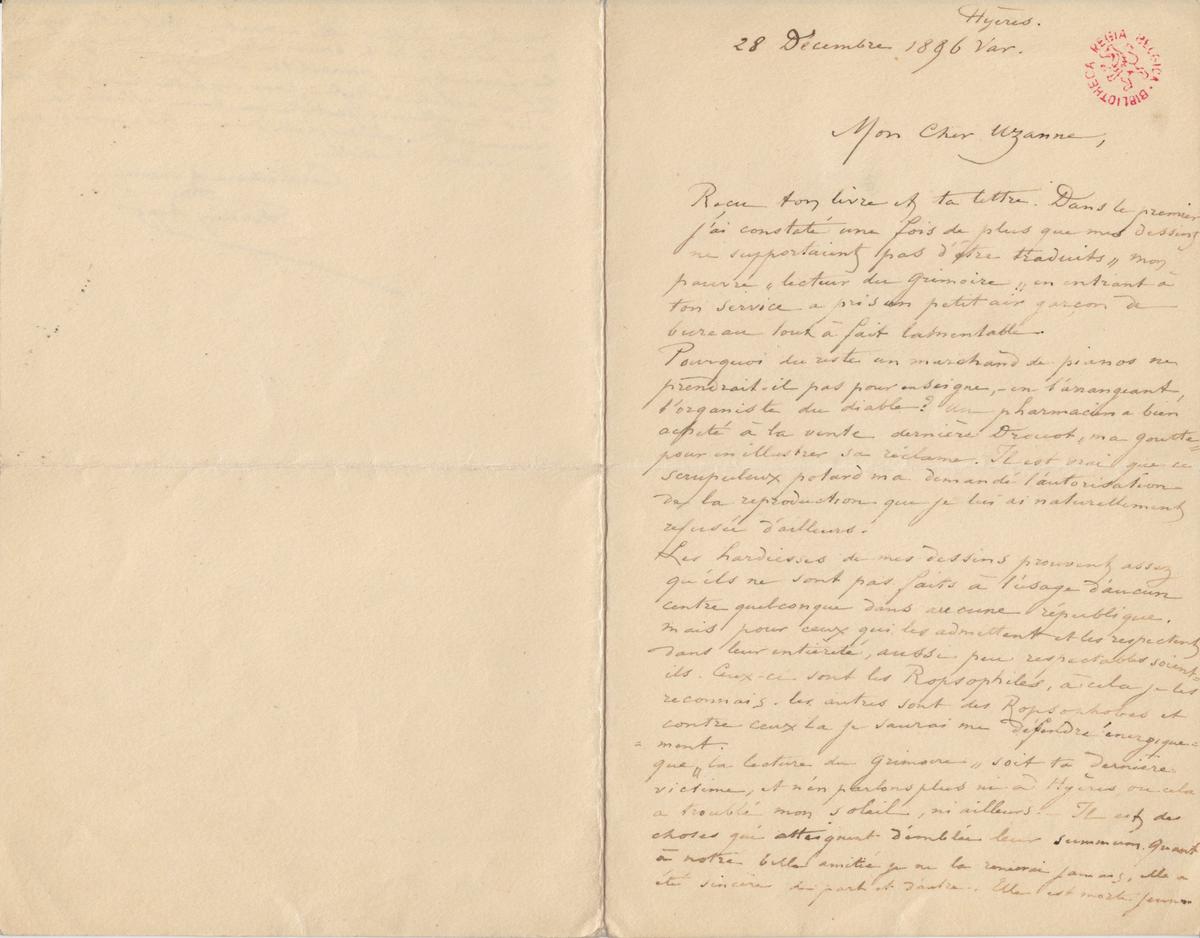 Hyères.
28 Décembre 1896 Var.
BIBLIOTHECA REGIA BELGICA
Mon Cher Uzanne,
Reçu ton livre et ta lettre. Dans le premier
j'ai constaté une fois de plus que mes dessins
ne supportaient pas d'être traduits „ mon
pauvre „ lecteur du Grimoire „ en entrant à
ton service a pris un petit air garçon de
bureau tout à fait lamentable.
Pourquoi du reste un marchand de pianos ne
prendrait-il pas pour enseigne, - en l'arrangeant,
l'organiste du diable? un pharmacien a bien
acheté à la vente dernière Drouot, ma goutte =
pour en illustrer sa réclame. Il est vrai que ce
scrupuleux potard m'a demandé l'autorisation
de la reproduction que je lui ai naturellement
refusée d'ailleurs.
Les hardiesses de mes dessins prouvent assez
qu'ils ne sont pas faits à l'usage d'aucun
centre quelconque dans aucune république.
mais pour ceux qui les admettent et les respectent
dans leur entièreté, aussi peu respectables soient-
ils. Ceux-ci sont les Ropsophiles, à cela je les
reconnais. les autres sont des Ropsophobes et
contre ceux là je saurai me défendre énergique =
= ment.
que „ la lecture du Grimoire „ soit ta dernière
victime, et n'en parlons plus ni à Hyères, ou cela
a troublé mon soleil, ni ailleurs. - Il est des
choses qui atteignent d'emblée leur summum. Quant
à notre belle amitié je ne la renierai jamais, elle a
été sincère de part et d'autre. Elle est morte jeune